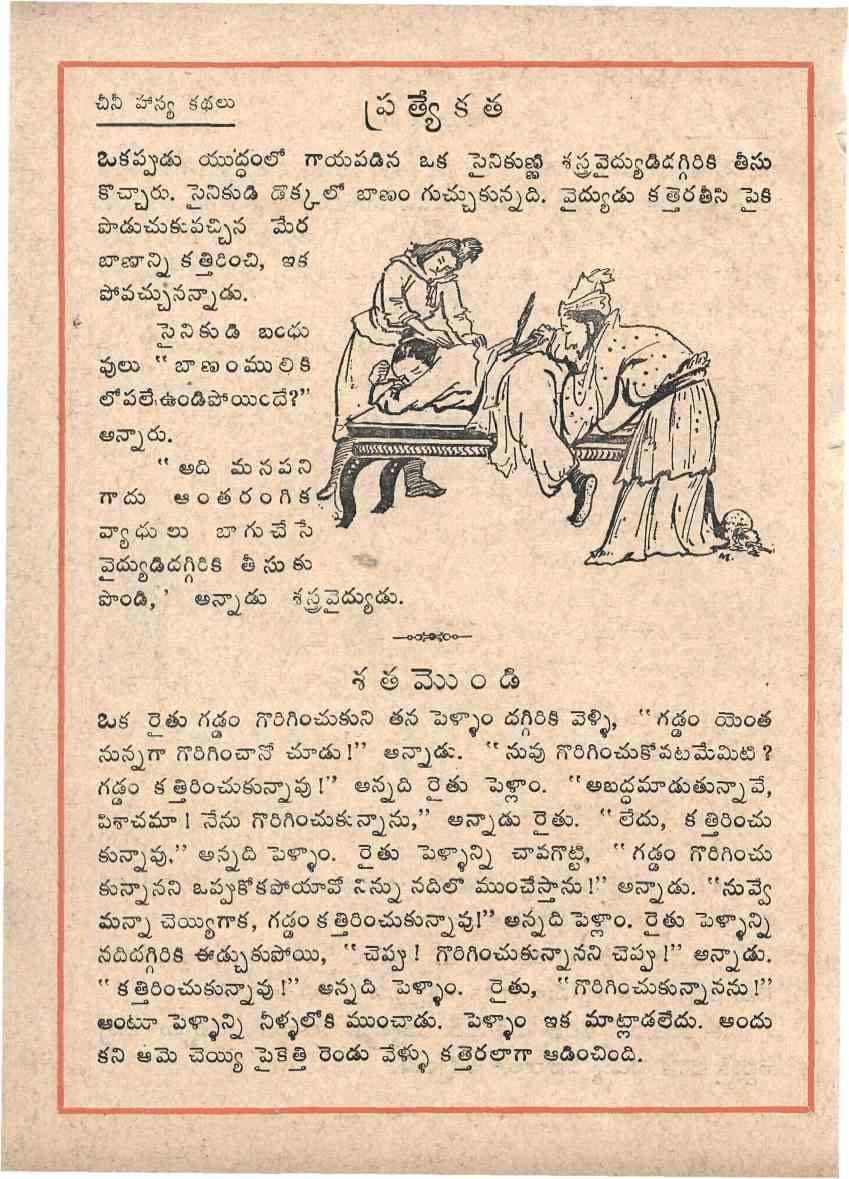 చీనీ హాస్య కథలు
ప్రత్యేకత
ఒకప్పుడు యుద్ధంలో గాయపడిన ఒక సైనికుణ్ణి శస్త్రవైద్యుడిదగ్గిరికి తీసు
కొచ్చారు. సైనికుడి డొక్కలో బాణం గుచ్చుకున్నది. వైద్యుడు కత్తెరతీసి పైకి
పొడుచుకువచ్చిన మేర
బాణాన్ని కత్తిరించి, ఇక
పోవచ్చునన్నాడు.
సైనికుడి బంధు
వులు “బాణంములికి
లోపలేఉండిపోయిందే?”
అన్నారు.
“అది మనపని
గాదు ఆంతరంగిక
వ్యాధులు బాగుచేసే
వైద్యుడిదగ్గిరికి తీసుకు
పొండి,’ అన్నాడు శస్త్రవైద్యుడు.
M.
శతమొండి
ఒక రైతు గడ్డం గొరిగించుకుని తన పెళ్ళాం దగ్గిరికి వెళ్ళి, “గడ్డం యెంత
నున్నగా గొరిగించానో చూడు!” అన్నాడు. “నువు గొరిగించుకోవటమేమిటి?
గడ్డం కత్తిరించుకున్నావు!” అన్నది రైతు పెళ్లాం. “అబద్ధమాడుతున్నావే,
పిశాచమా! నేను గొరిగించుకున్నాను,” అన్నాడు రైతు. “లేదు, కత్తిరించు
కున్నావు,” అన్నది పెళ్ళాం. రైతు పెళ్ళాన్ని చావగొట్టి, “గడ్డం గొరిగించు
కున్నానని ఒప్పుకోకపోయావో నిన్ను నదిలో ముంచేస్తాను!” అన్నాడు. “నువ్వే
మన్నా చెయ్యిగాక, గడ్డం కత్తిరించుకున్నావు!” అన్నది పెళ్లాం. రైతు పెళ్ళాన్ని
నదిదగ్గిరికి ఈడ్చుకుపోయి, “చెప్పు! గొరిగించుకున్నానని చెప్పు!” అన్నాడు.
“కత్తిరించుకున్నావు!” అన్నది పెళ్ళాం. రైతు, “గొరిగించుకున్నానను!”
అంటూ పెళ్ళాన్ని నీళ్ళలోకి ముంచాడు. పెళ్ళాం ఇక మాట్లాడలేదు. అందు
కని ఆమె చెయ్యి పైకెత్తి రెండు వేళ్ళు కత్తెరలాగా ఆడించింది.